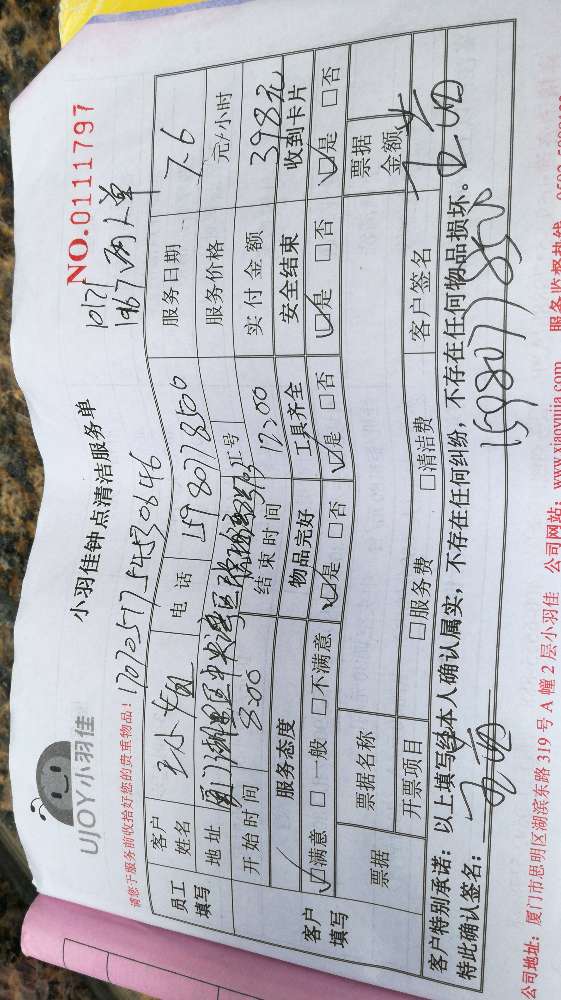 UJOY小羽佳
小羽佳钟点清洁服务单
NO.0111797
请您于服务前收拾好您的贵重物品!
员工填写
客户姓名 王小姐 电话 15980778500 服务日期 7.6
地址 工号 服务价格 元/小时
开始时间 8:00 结束时间 12:00 实付金额 398元
客户填写
服务态度 物品完好 工具齐全 安全结束 收到卡片
□满意 □一般 □不满意 □是 □否 □是 □否 □是 □否 □是 □否
票据 票据名称 票据金额
开票项目 □服务费 □清洁费 客户签名
客户特别承诺: 以上填写经本人确认属实, 不存在任何纠纷, 不存在任何物品损坏。
特此确认签名:
公司地址: 厦门市思明区湖滨东路 319 号 A 幢 2 层小羽佳 公司网站: www.xiaoyujia.com 服务监督热线